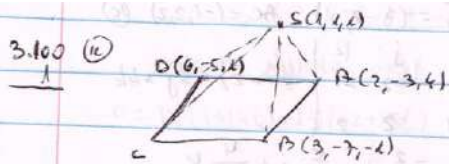 3.100 (12)
1
S(1,1,1)
D(6,-5,1)
A(2,-3,4)
B(3,-7,-1)
C